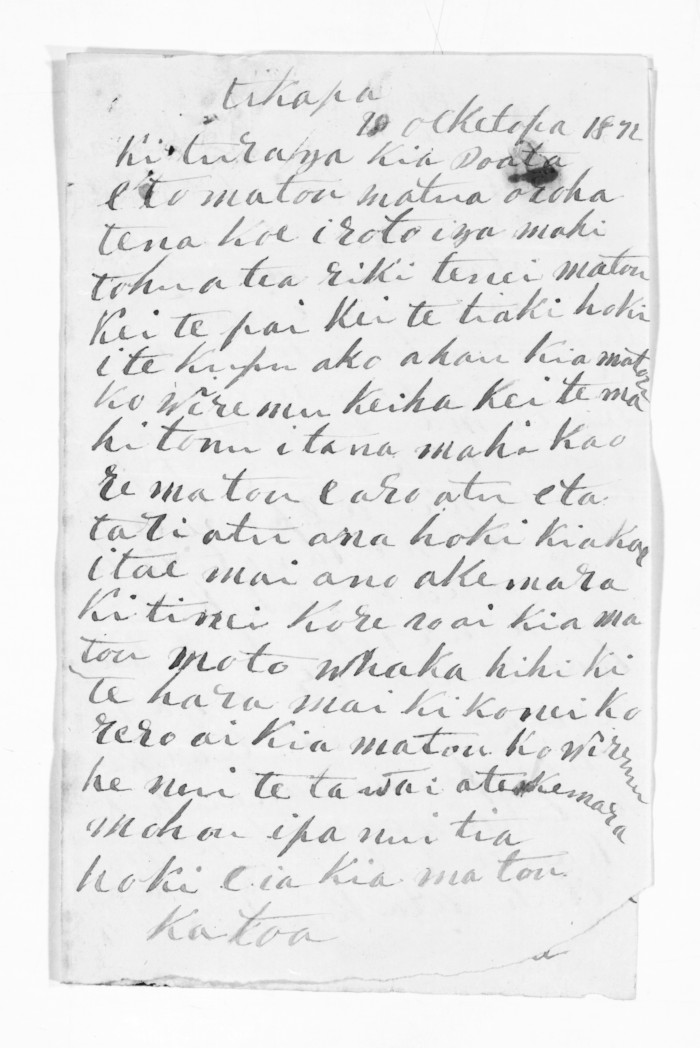 tikapa
10 ocketopa 1872
Ki turaga kia Doata
e to matou matua aroha
tena koe i roto i ga mahi
tohu a tea riki tenei matou
kei te pai kei te tiaki hoki
i te kupu ako a hau kia matou
ko Wiremu keiha kei te ma
hi tonu i tana mahi kao
re matou e aro atu eta
tari atu ana hoki kia koe
i tae mai ano ake mara
ki tinei kore ro ai kia ma
tou moto whaka hihi ki
te hara mai ki konei ko
rero ai kia matou ko wiremu
he nui te ta wai ate kemara
mohou i pa nui tia
hoki e ia kia ma tou
Katoa